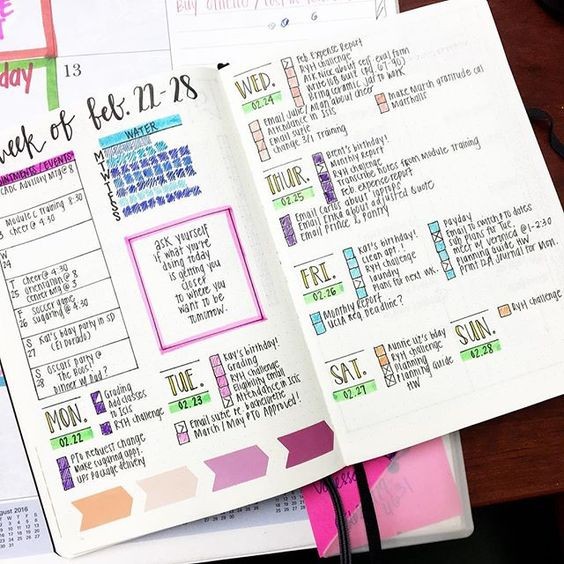 13
week of feb. 22-28
APPOINTMENTS/EVENTS
WATER
M
T
W
T
F
S
S
Advisory Mtg @ 8
Module C Training 8:30
cheer @ 4:30
W
24
T
25
cheer @ 4:30
orientation @ 8
center mtg @ 3
F
26
soccer game
sugaring @ 4:30
S
27
Kai's bday party in SD
(El Dorado)
S
28
Oscars party @
The Roos!
Dinner w/ Dad?
ask yourself
if what you're
doing today
is getting you
closer
to where you
want to be
tomorrow.
MON.
02.22
Grading
add classes
to ISIS
RYH challenge
PTO Request change
Make sugaring appt.
UPS package delivery
TUE.
02.23
Kay's birthday!
Grading
RYH Challenge
Eligibility email
Attendance in ISIS
Email Suzie re
March / May PTO Approved!
WED.
02.24
Feb Expense Report
RYH challenge
Ask Nice about self-eval form
Write LSB Quiz
Bring ceramic jar to work
Email Julie / Allan about cheer
Attendance in ISIS
Email Suzie
change 3/1 Training
Make March gratitude cal
THUR.
02.25
Bren's birthday!
Monthly Report
RYH challenge
Transcribe Notes from Module Training
Feb. expense report
Email Chris about laptops
Email Erika about adjusted Quote
Email Prince @ Pantry
FRI.
02.26
Kai's birthday!
clean apt.!
RYH challenge
laundry
Plans for next wk.
Monthly Report
UCLA Reg. Deadline?
payday
Email to switch to dates
sub plans for Tue.
meet w/ Veronica @ 1-2:30
Planning Guide HW
Print LSA Journal for Mon.
SAT.
02.27
Auntie Liz's bday
RYH challenge
Planning
Planning Guide
HW
SUN.
02.28
RYH challenge
August 2016